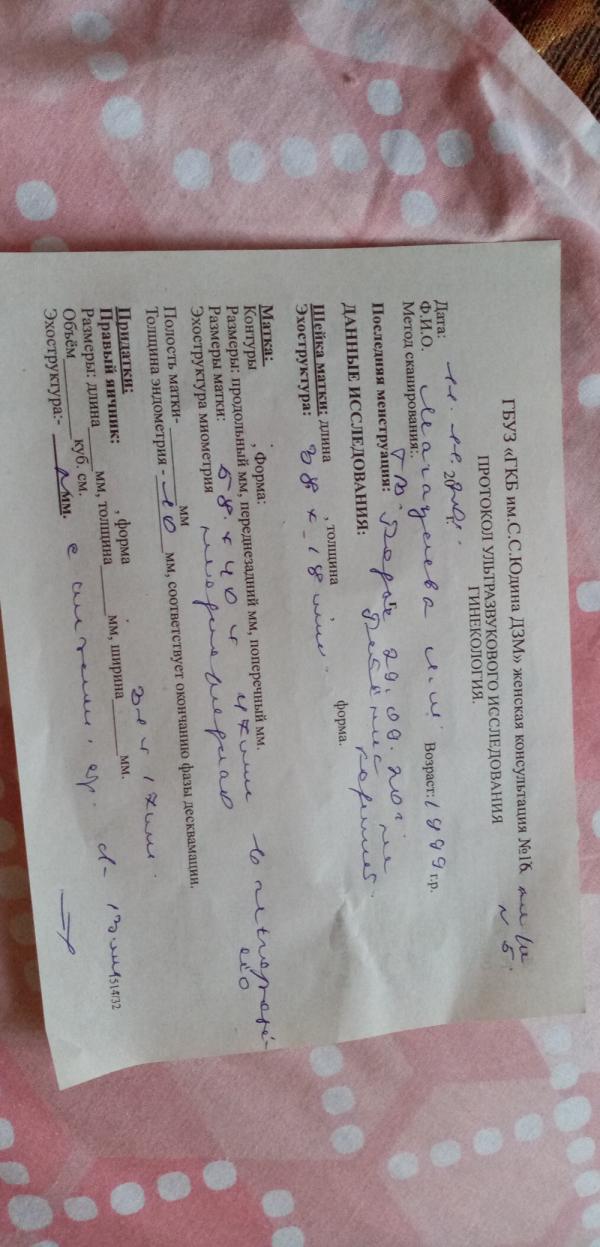 ГБУЗ «ГКБ им.С.С.Юдина ДЗМ» женская консультация №16.
№ 5.
ПРОТОКОЛ УЛЬТРАЗВУКОВОГО ИССЛЕДОВАНИЯ
ГИНЕКОЛОГИЯ.
Дата: 11.11.20г.
Ф.И.О. Возраст: 1999 г.р.
Метод сканирования:.
Последняя менструация: 29.09.20г. не
ДАННЫЕ ИССЛЕДОВАНИЯ: кормит.
Шейка матки: длина , толщина форма.
Эхоструктура: 38 х 18 мм.
Матка:
Контуры , Форма:
Размеры: продольный мм, переднезадний мм, поперечный мм.
Размеры матки: 58 х 40 х 47мм в
Эхоструктура миометрия
Полость матки- мм
Толщина эндометрия - 10 мм, соответствует окончанию фазы десквамации.
Придатки:
Правый яичник: , форма
Размеры: длина мм, толщина мм, ширина мм.
Объём куб. см.
Эхоструктура:- мм. d- 13 мм
1514/32